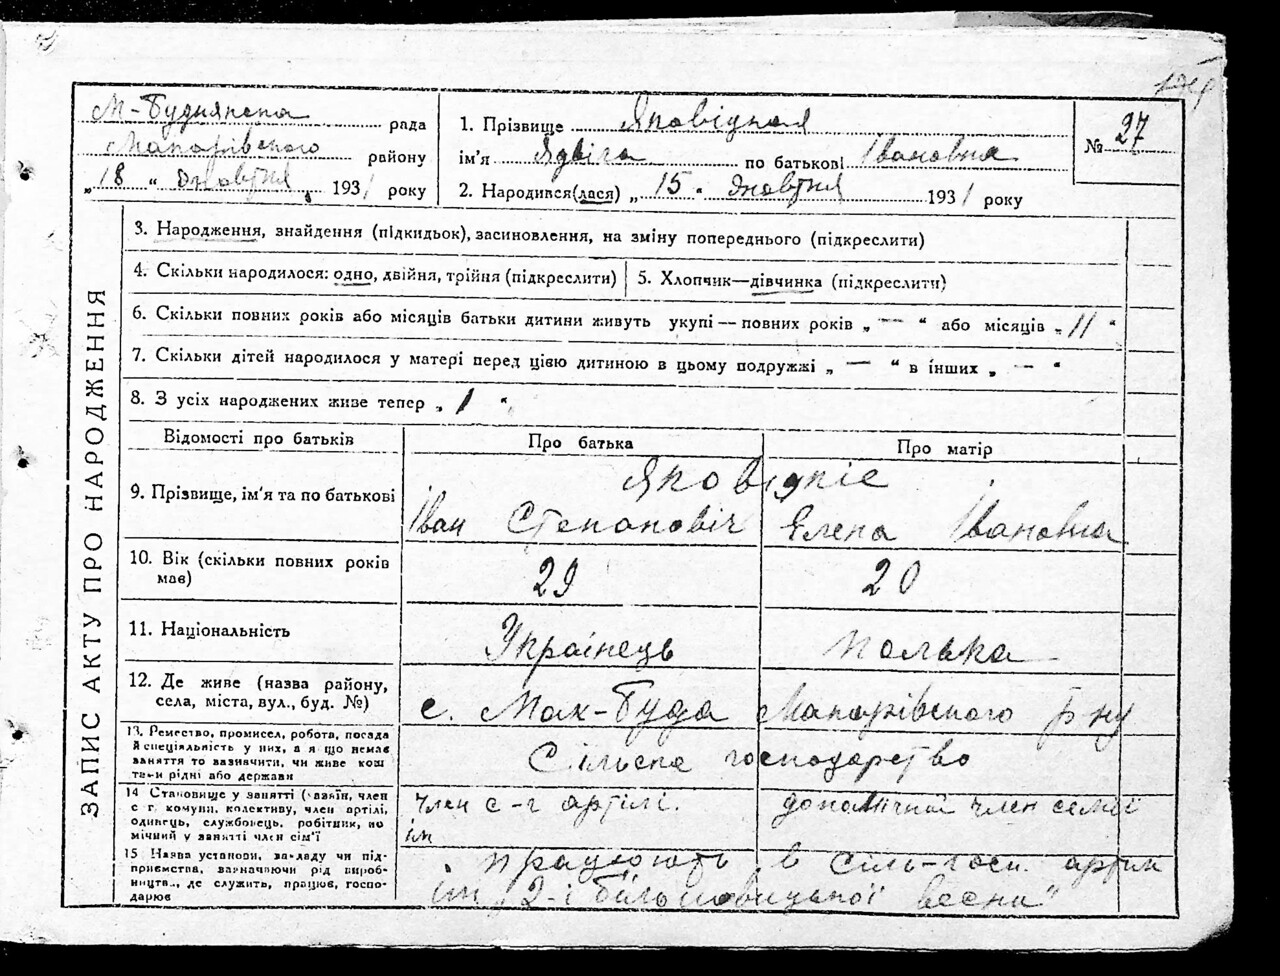 М-Буднянска рада
Макарівского району
„18“ Жовтня 1931 року
1. Прізвище Яковіцкая
ім'я Ядвіга по батькові Івановна
2. Народився(лася) „15“ Жовтня 1931 року
№ 27
ЗАПИС АКТУ ПРО НАРОДЖЕННЯ
3. Народження, знайдення (підкидьок), засиновлення, на зміну попереднього (підкреслити)
4. Скільки народилося: одно, двійня, трійня (підкреслити)
5. Хлопчик—дівчинка (підкреслити)
6. Скільки повних років або місяців батьки дитини живуть укупі — повних років „ — “ або місяців „ 11 “
7. Скільки дітей народилося у матері перед цією дитиною в цьому подружжі „ — “ в інших „ — “
8. З усіх народжених живе тепер „ 1 “
Відомості про батьків
Про батька
Про матір
9. Прізвище, ім'я та по батькові
Іван Степановіч
Елена Івановна
10. Вік (скільки повних років
має)
29
20
11. Національність
Українець
полька
12. Де живе (назва району,
села, міста, вул., буд. №)
с. Мак-Буда Макарівского р-ну
13. Ремество, промисел, робота, посада
й спеціяльність у них, а якщо немає
заняття то вазначити, чи живе кош
тами рідні або держави
Сільске господарство
14 Становище у занятті (хазяїн, член
с г. комуни, колективу, член артілі,
одинець, службовець, робітник, по
мічний у занятті член сім'ї
член с-г артілі.
ім
допомічний член семії
15 Назва установи, закладу чи під-
приємства, вазначаючи рід вироб-
ництва, де служить, працює, госпо-
дарює
працюють в сіль-госп. артіл
ім „2-ї більшовицької весни“